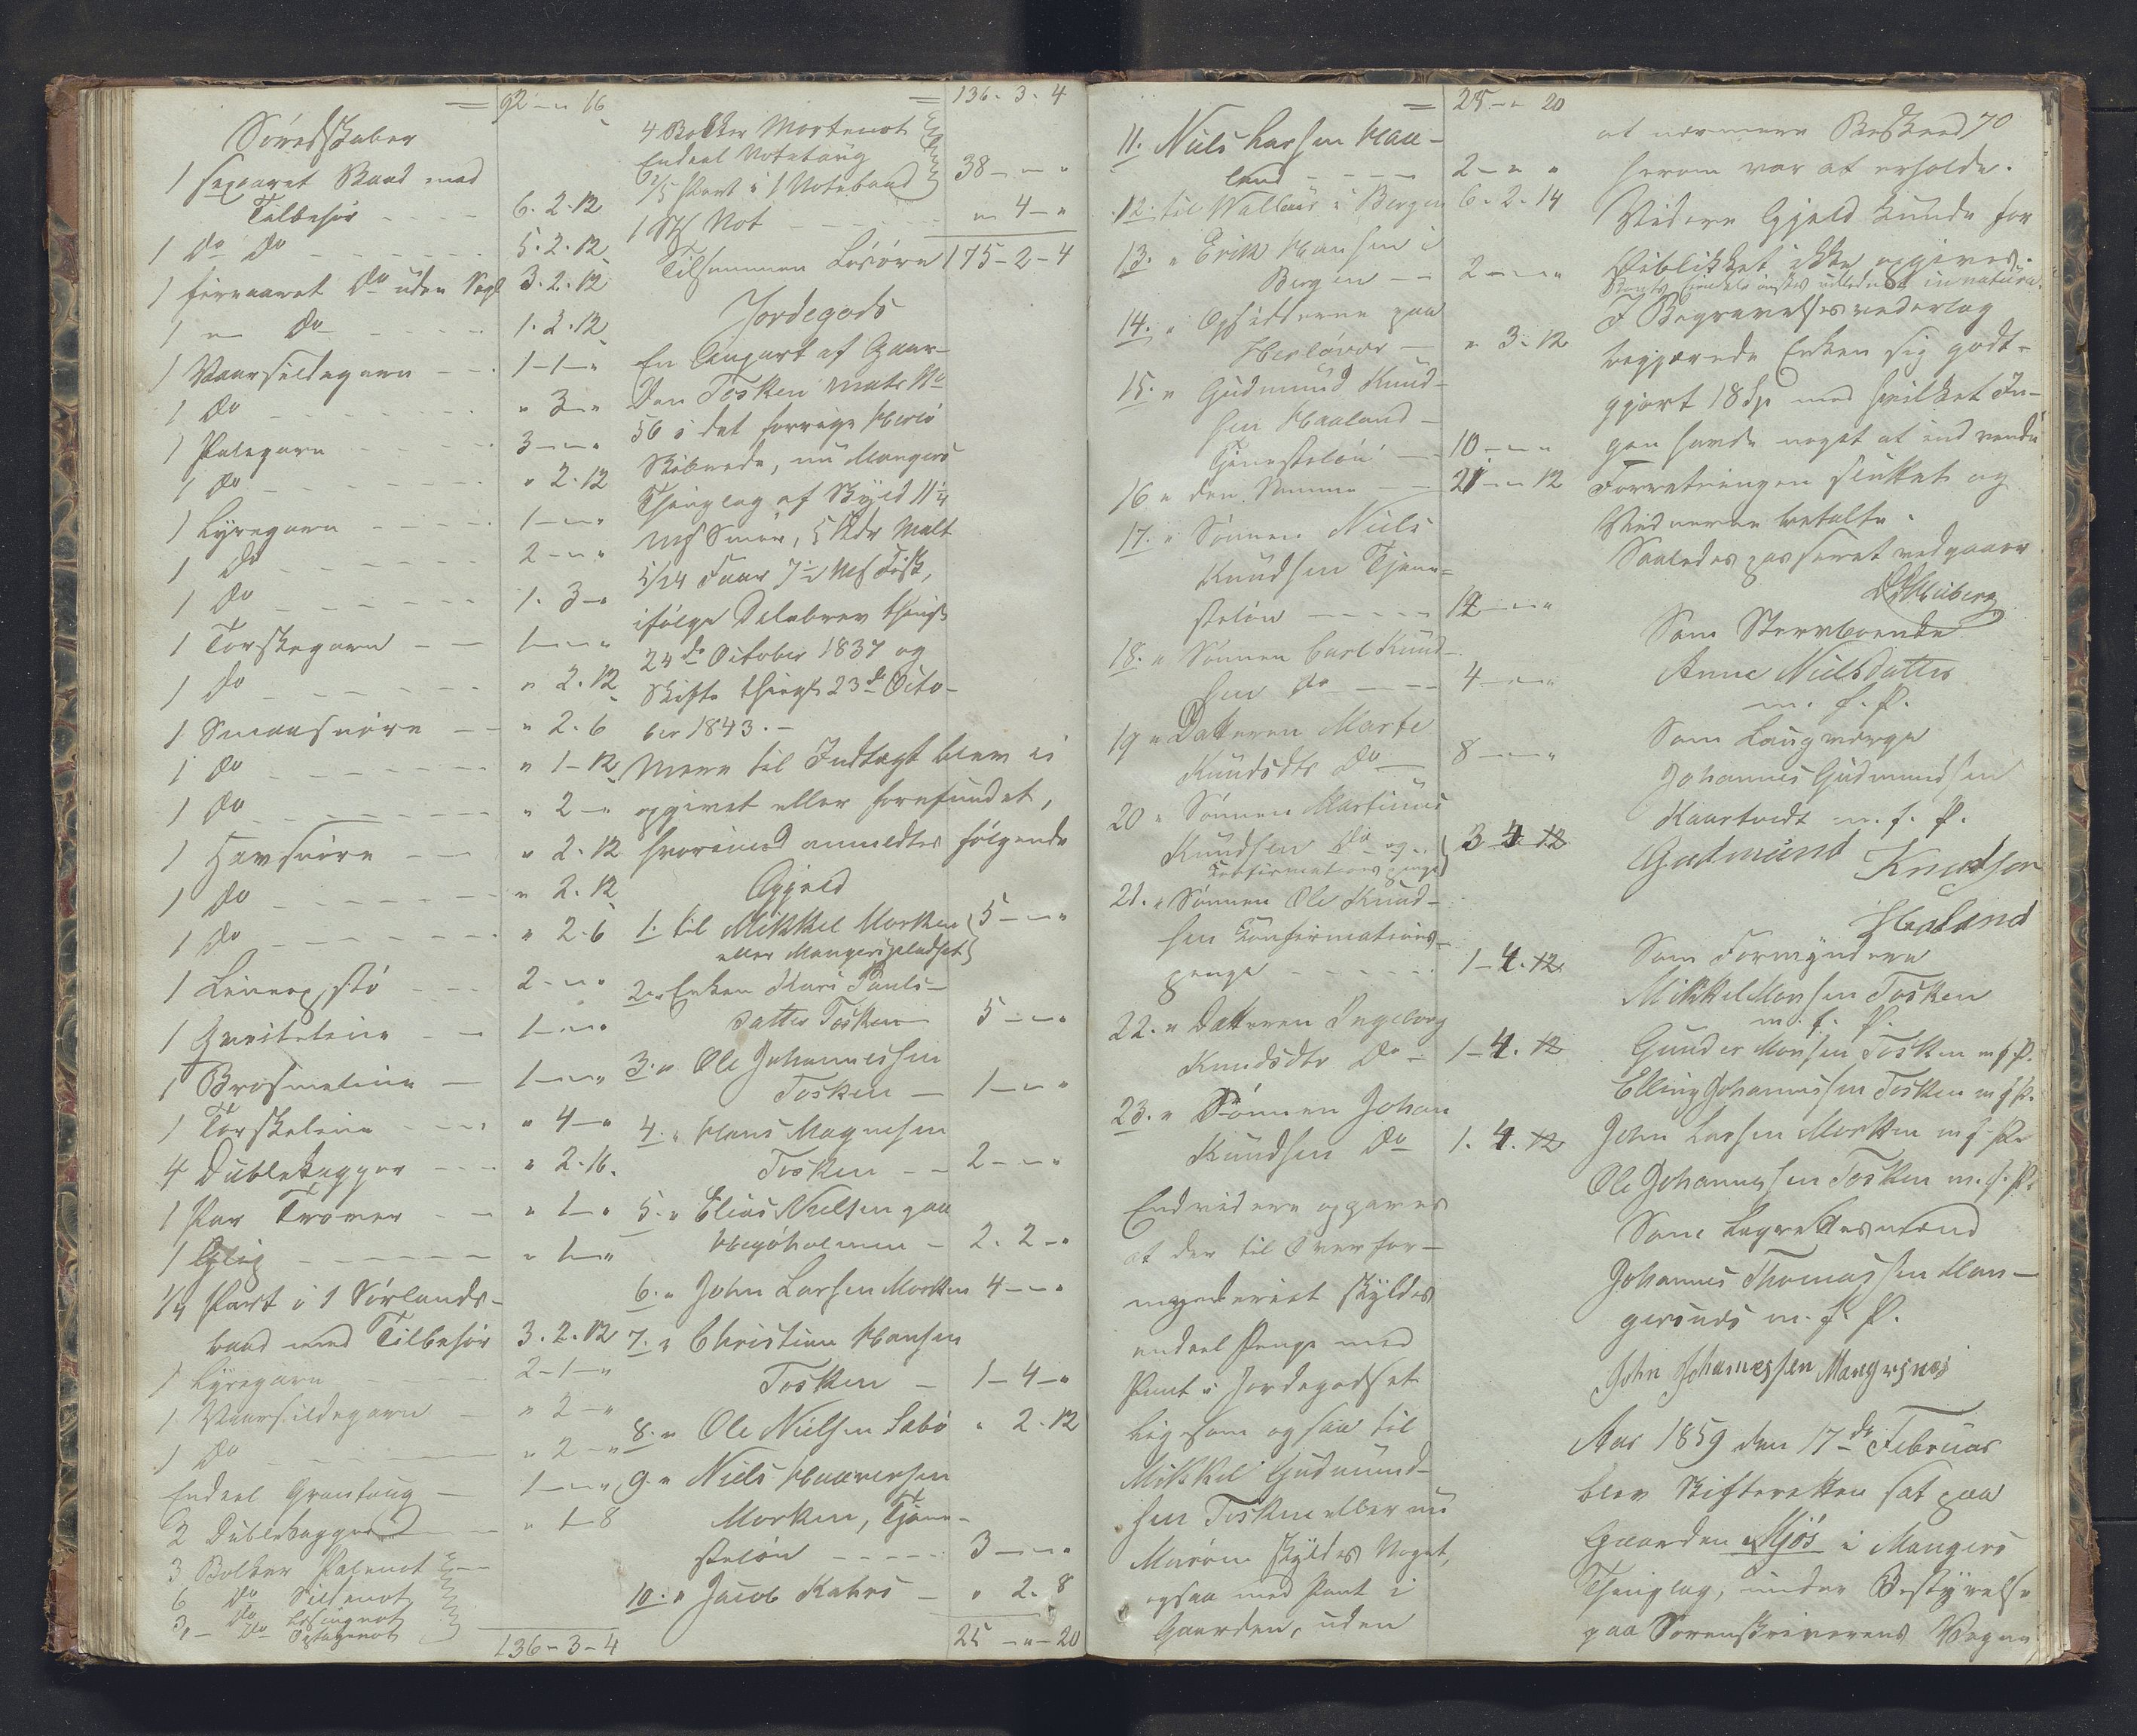 = 92 - " 16
Söredskaber
1 sexaaret Baad med
Tilbehör - - - - 6. 2. 12
1 do do - - - - - - 5. 2. 12
1 firaaret do uden Segl 3. 2. 12
1 " do - - - - - 1. 2. 12
1 Vaarsildegarn - - - 1 - 1 - "
1 do - - - - - - - " 3 - "
1 Palegarn - - - - 3 - " - "
1 do - - - - - - - " 2. 12
1 Lyregarn - - - - - 1 - " - "
1 do - - - - - - - 2 - " - "
1 do - - - - - - - 1. 3 - "
1 Torskegarn - - - 1 - " - "
1 do - - - - - - " 2. 12
1 Smaasnöre - - - " 2. 6
1 do - - - - - - - " 1 - 12
1 do - - - - - - - " 2 - "
1 Havsnöre - - - " 2. 12
1 do - - - - - - " 2. 12
1 do - - - - - - - " 2. 6
1 Lineopstö - - - 2 - " - "
1 Qveiteline - - 1 - " - "
1 Brosmeline - - 1 - " - "
1 Torskeline - - - " 4 - "
4 Dublekagger - - - " 2. 16
1 Par Trover - - " 1 - "
1 Glip - - - - - " 1 - "
1/4 Part i 1 Sörlands-
baad med Tilbehör 3. 2. 12
1 Lyregarn - - - - 2 - 1 - "
1 Vaarsildegarn - " 2 - "
1 do - - - - - - " 2 - "
Endeel Grantoug - 1 - " - "
2 Dublekagger " 1 - 8
3 Bolker Palenot
6 do Sildenot
3 - do Losingnot
- do Optagenot
136 - 3 - 4
= 136. 3. 4
4 Bolker Mortenot
Endeel Notetoug
1/5 Part i 1 Notebaad 38 - " - "
1 Not - - - - " 4 - "
Tilsammen Lösöre 175 - 2 - 4
Jordegods
En Anpart af Gaar-
den Tosken Matr No
56 i det forrige Herlö
Skibrede, nu Mangers
Thinglag af Skyld 11 1/4
Mk Smör, 5 Kdr Malt
5/24 Faar 7 1/2 Mk Fisk,
ifölge Delebrev thingl.
24de October 1837 og
Skifte thingl. 23de Octo-
ber 1843. -
Mere til Indtægt blev ei
opgivet eller forefundet,
hvorimod anmeldtes fölgende
Gjæld
1. til Mikkel Morken
eller Mangerspladset 5 - " - "
2. " Enken Kari Pauls-
datter Tosken 5 - " - "
3. " Ole Johannessen
Tosken - 1 - " - "
4. " Hans Magnesen
Tosken - - 2 - " - "
5. " Elias Nielsen paa
Högöholmen - 2. 2 - "
6. " John Larsen Morken 4 - " - "
7. " Christian Hansen
Tosken - 1 - 4 - "
8. " Ole Nielsen Sabö " 2. 12
9. " Niels Haaversen
Morken, Tjene-
stelön - - - - - 3 - " - "
10. " Jacob Kahrs - " 2. 8
25 - " - 20
= 25 - " 20
11. " Niels Larsen Haa-
land - - - - 2 - " "
12. til Wallaas i Bergen 6. 2. 14
13. " Erik Hansen i
Bergen - - 2 - " - "
14. " Opsidderne paa
Herlövær - " 3. 12
15. " Gudmund Knud-
sen Haaland -
Tjenestelön - - 10 - " - "
16 " den Samme - - 21 - " 12
17. " Sönnen Niels
Knudsen Tjene-
stelön - - - - - 12 - " - "
18. " Sönnen Carl Knud-
sen do - - - 4 - " - "
19 " Datteren Marte
Knudsdtr do - 8 - " - "
20 " Sönnen Martinus
Knudsen do og
Confirmationspenge 3 4 12
21. " Sönnen Ole Knud-
sen Confirmations-
penge - - - - - - 1 - 4. 12
22. " Datteren Ingeborg
Knudsdtr do - 1 - 4. 12
23. " Sönnen Johan
Knudsen do 1. 4. 12
Endvidere opgaves
at der til Overfor-
mynderiet skyldes
endeel Penge med
Pant i Jordegodset
ligesom ogsaa til
Mikkel Gudmund-
sen Tosken eller nu
skyldes Noget,
ogsaa med Pant i
Gaarden, uden
70
at nærmere Beskeed
herom var at erholde.
Videre Gjæld kunde for
Öieblikket ikke opgives.
udlednet in natura.
I Begravelsesvederlag
begjærede Enken sig godt-
gjort 18 Sp med hvilket In-
gen havde noget at indvende
Forretningen sluttet og
Vidnerne betalte.
Saaledes passeret vedgaaer
Heiberg
Som Stervboende
Anne Nielsdatter
m. f. P.
Som Laugværge
Johannes Gudmundsen
Kaartvedt m. f. P.
Gudmund Knudsen
Haland
Som Formyndere
Mikkel Monsen Tosken
m. f. P.
Gunder Monsen Tosken m f P.
Elling Johannessen Tosken m f P.
John Larsen Morken m f P.
Ole Johannessen Tosken m. f. P.
Som Lagrettesmænd
Johannes Thomassen Man-
gersnes m. f. P.
John Johannessen Mangersnes
Aar 1859 den 17de Februar
blev Skifteretten sat paa
Gaarden Mjös i Mangers
Thinglag, under Bestyrelse
paa Sorenskriverens Vegne